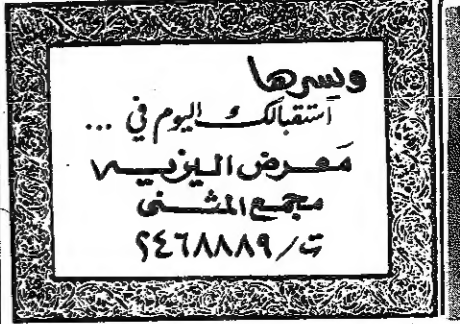 ويسرها
أستقبالك اليوم في ...
معرض اليزيـــه
مجمع المثـــنى
ت/٢٤٦٨٨٨٩